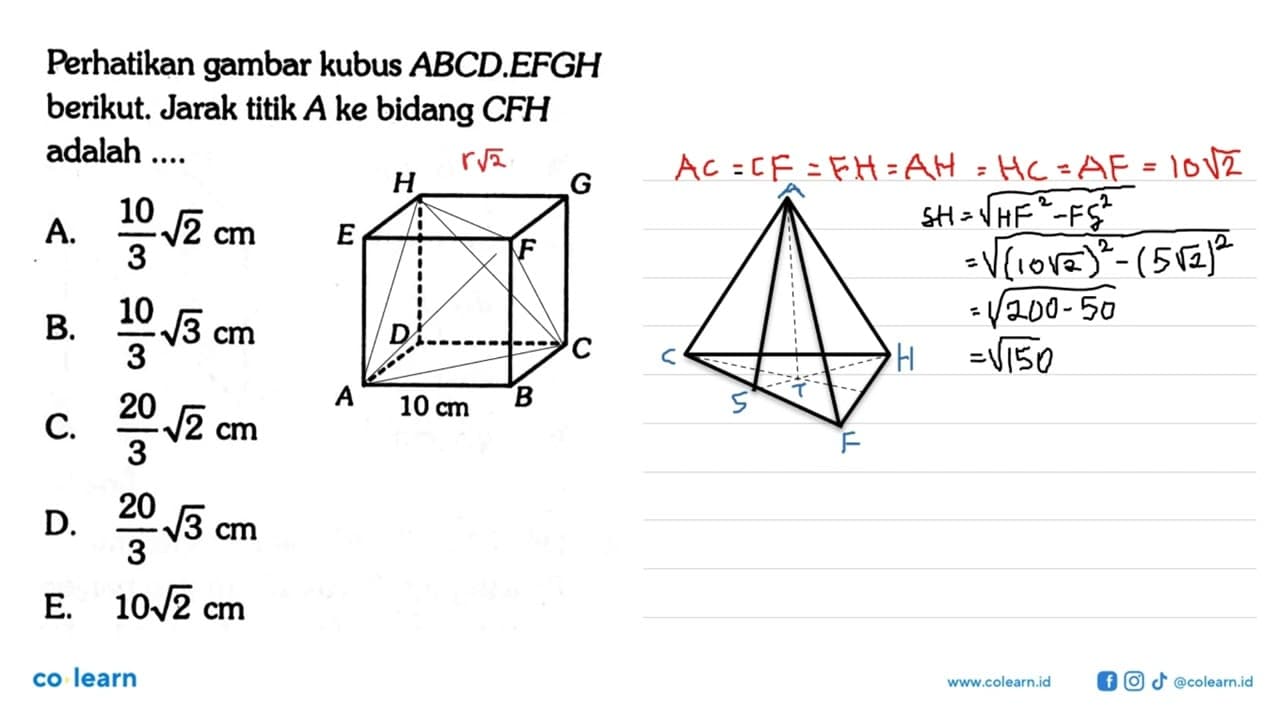 Perhatikan gambar kubus ABCD.EFGH
berikut. Jarak titik A ke bidang CFH
adalah ....
A. 10/3 √2 cm
B. 10/3 √3 cm
C. 20/3 √2 cm
D. 20/3 √3 cm
E. 10√2 cm
r√2
H
G
E
F
D
C
A
B
10 cm
AC = CF = FH = AH = HC = AF = 10√2
A
C
H
S
T
F
SH = √HF² - FS²
= √(10√2)² - (5√2)²
= √200 - 50
= √150
co learn
www.colearn.id
@colearn.id